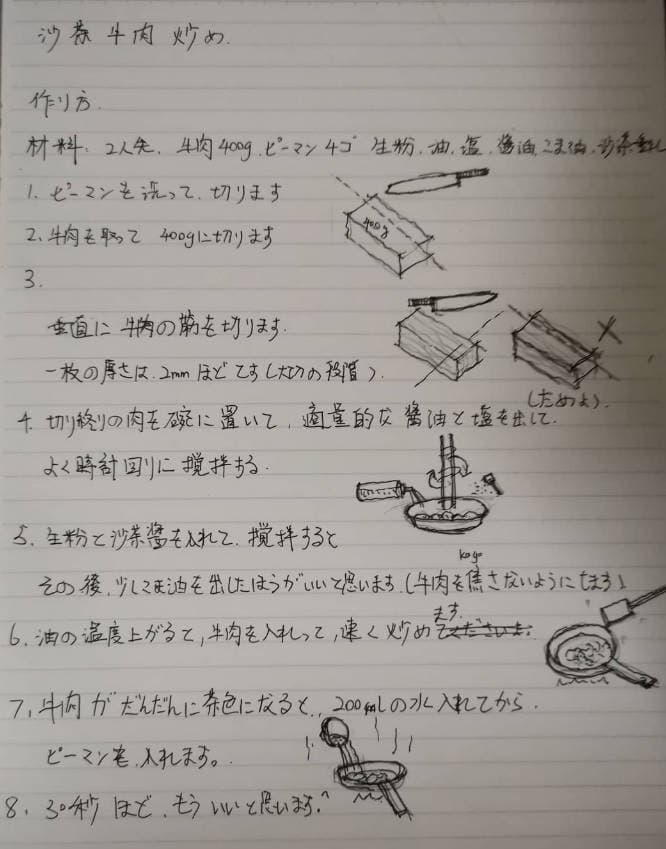 沙茶牛肉炒め.
作り方.
材料: 2人先. 牛肉400g. ピーマン4コ゛ 生粉. 油. 塩. 醤油. ごま油. 沙茶
1. ピーマンを洗って、切ります
400g
2. 牛肉を取って 400gに切ります
3.
垂直に牛肉の筋を切ります.
一枚の厚さは. 2mmほどです(大切の段階).
(だめよ).
4. 切り終りの肉を碗に置いて、適量的な醤油と塩を出して.
よく時計回りに攪拌する.
5. 生粉と沙茶醤を入れて. 攪拌すると
kogo
その後. 少しごま油を出したほうがいいと思います.(牛肉を焦さないようにします)
ます.
6. 油の温度上がると, 牛肉を入れって, 速く炒め
7. 牛肉がだんだんに茶色になると、200mlの水入れてから.
ピーマンを入れます。
8. 30秒ほど. もういいと思います.